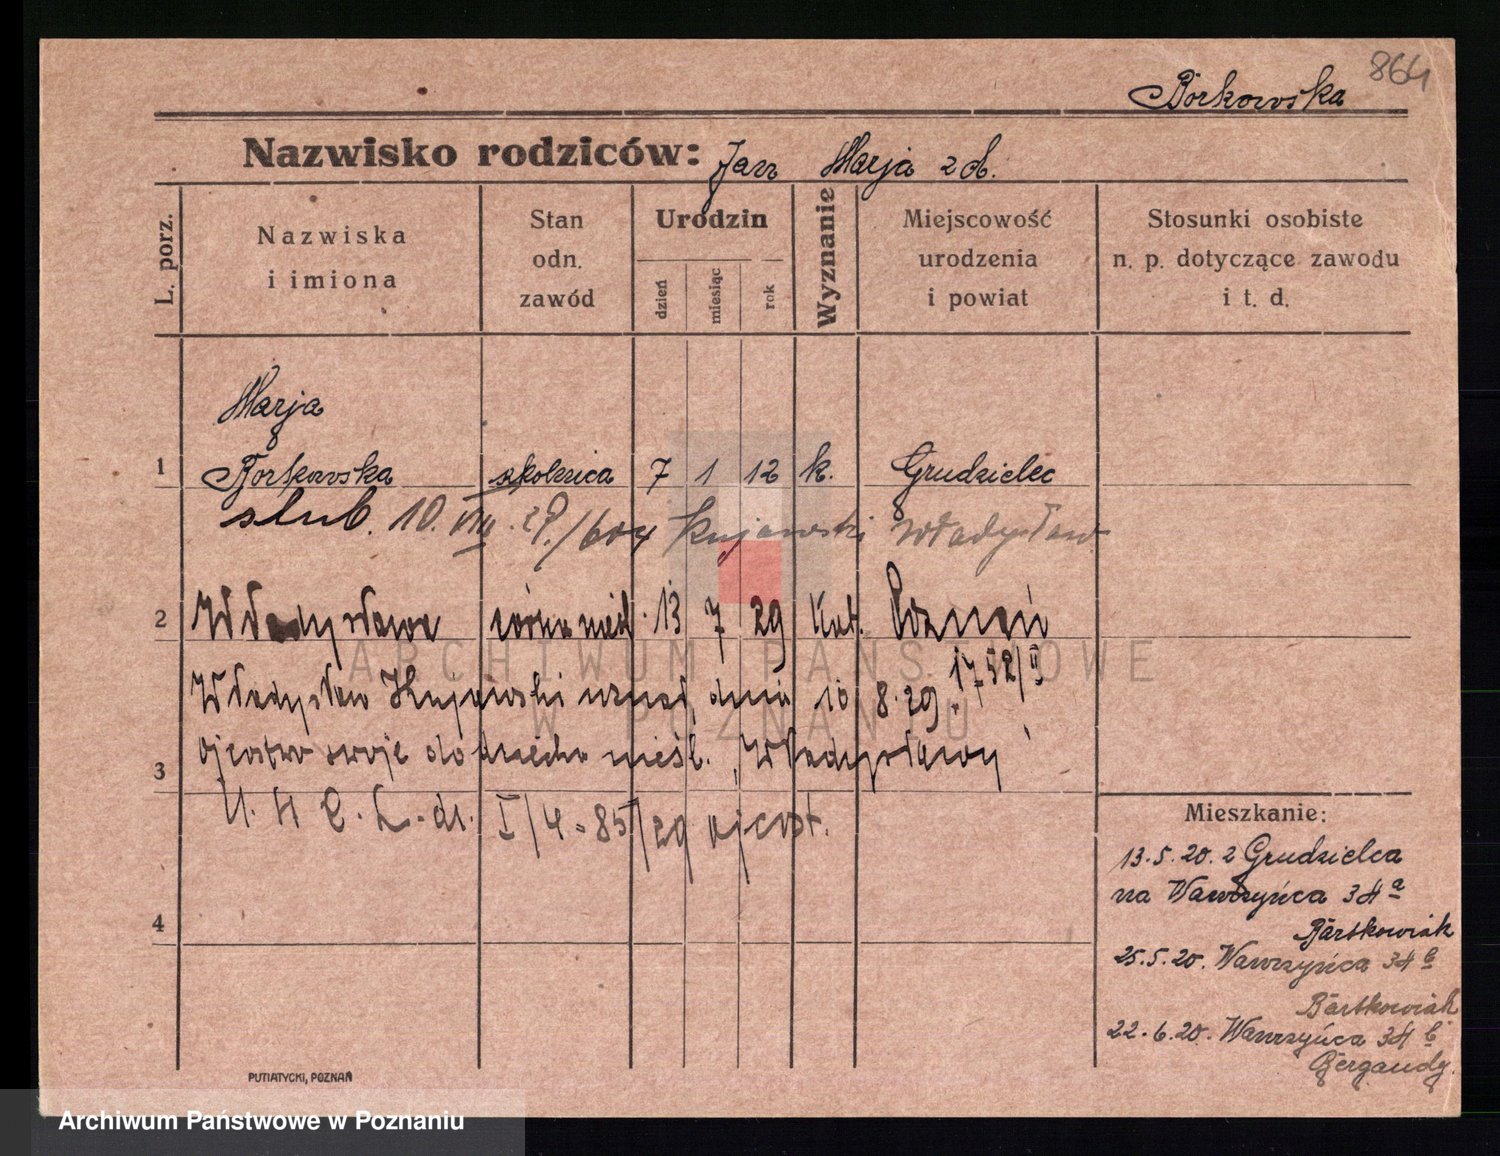 864
Borkowska
Nazwisko rodziców: Jan Marja z d.
L. porz.
Nazwiska i imiona
Stan odn. zawód
Urodzin
dzień
miesiąc
rok
Wyznanie
Miejscowość urodzenia i powiat
Stosunki osobiste n. p. dotyczące zawodu i t. d.
Marja
1 Borkowska szkolnica 7 1 12 k. Grudzielec
slub. 10. VIII. 29./604 Kujawski Władysław
2 Władysława córka nieśl. 13 7 29 kat. Poznań
1752/II
Władysław Kujawski uznał dnia 10 8. 29.
3 ojcostwo swoje do dziecka nieśl. „Władysławy"
U. S. C. L. dz. I/4-85/29 ojcost.
4
Mieszkanie:
13.5.20. z Grudzielca
na Wawrzyńca 34a
Bartkowiak
25.5.20. Wawrzyńca 34b
Bartkowiak
22.6.20. Wawrzyńca 34b
PUTIATYCKI, POZNAŃ
ARCHIWUM PAŃSTWOWE
W POZNANIU
Archiwum Państwowe w Poznaniu